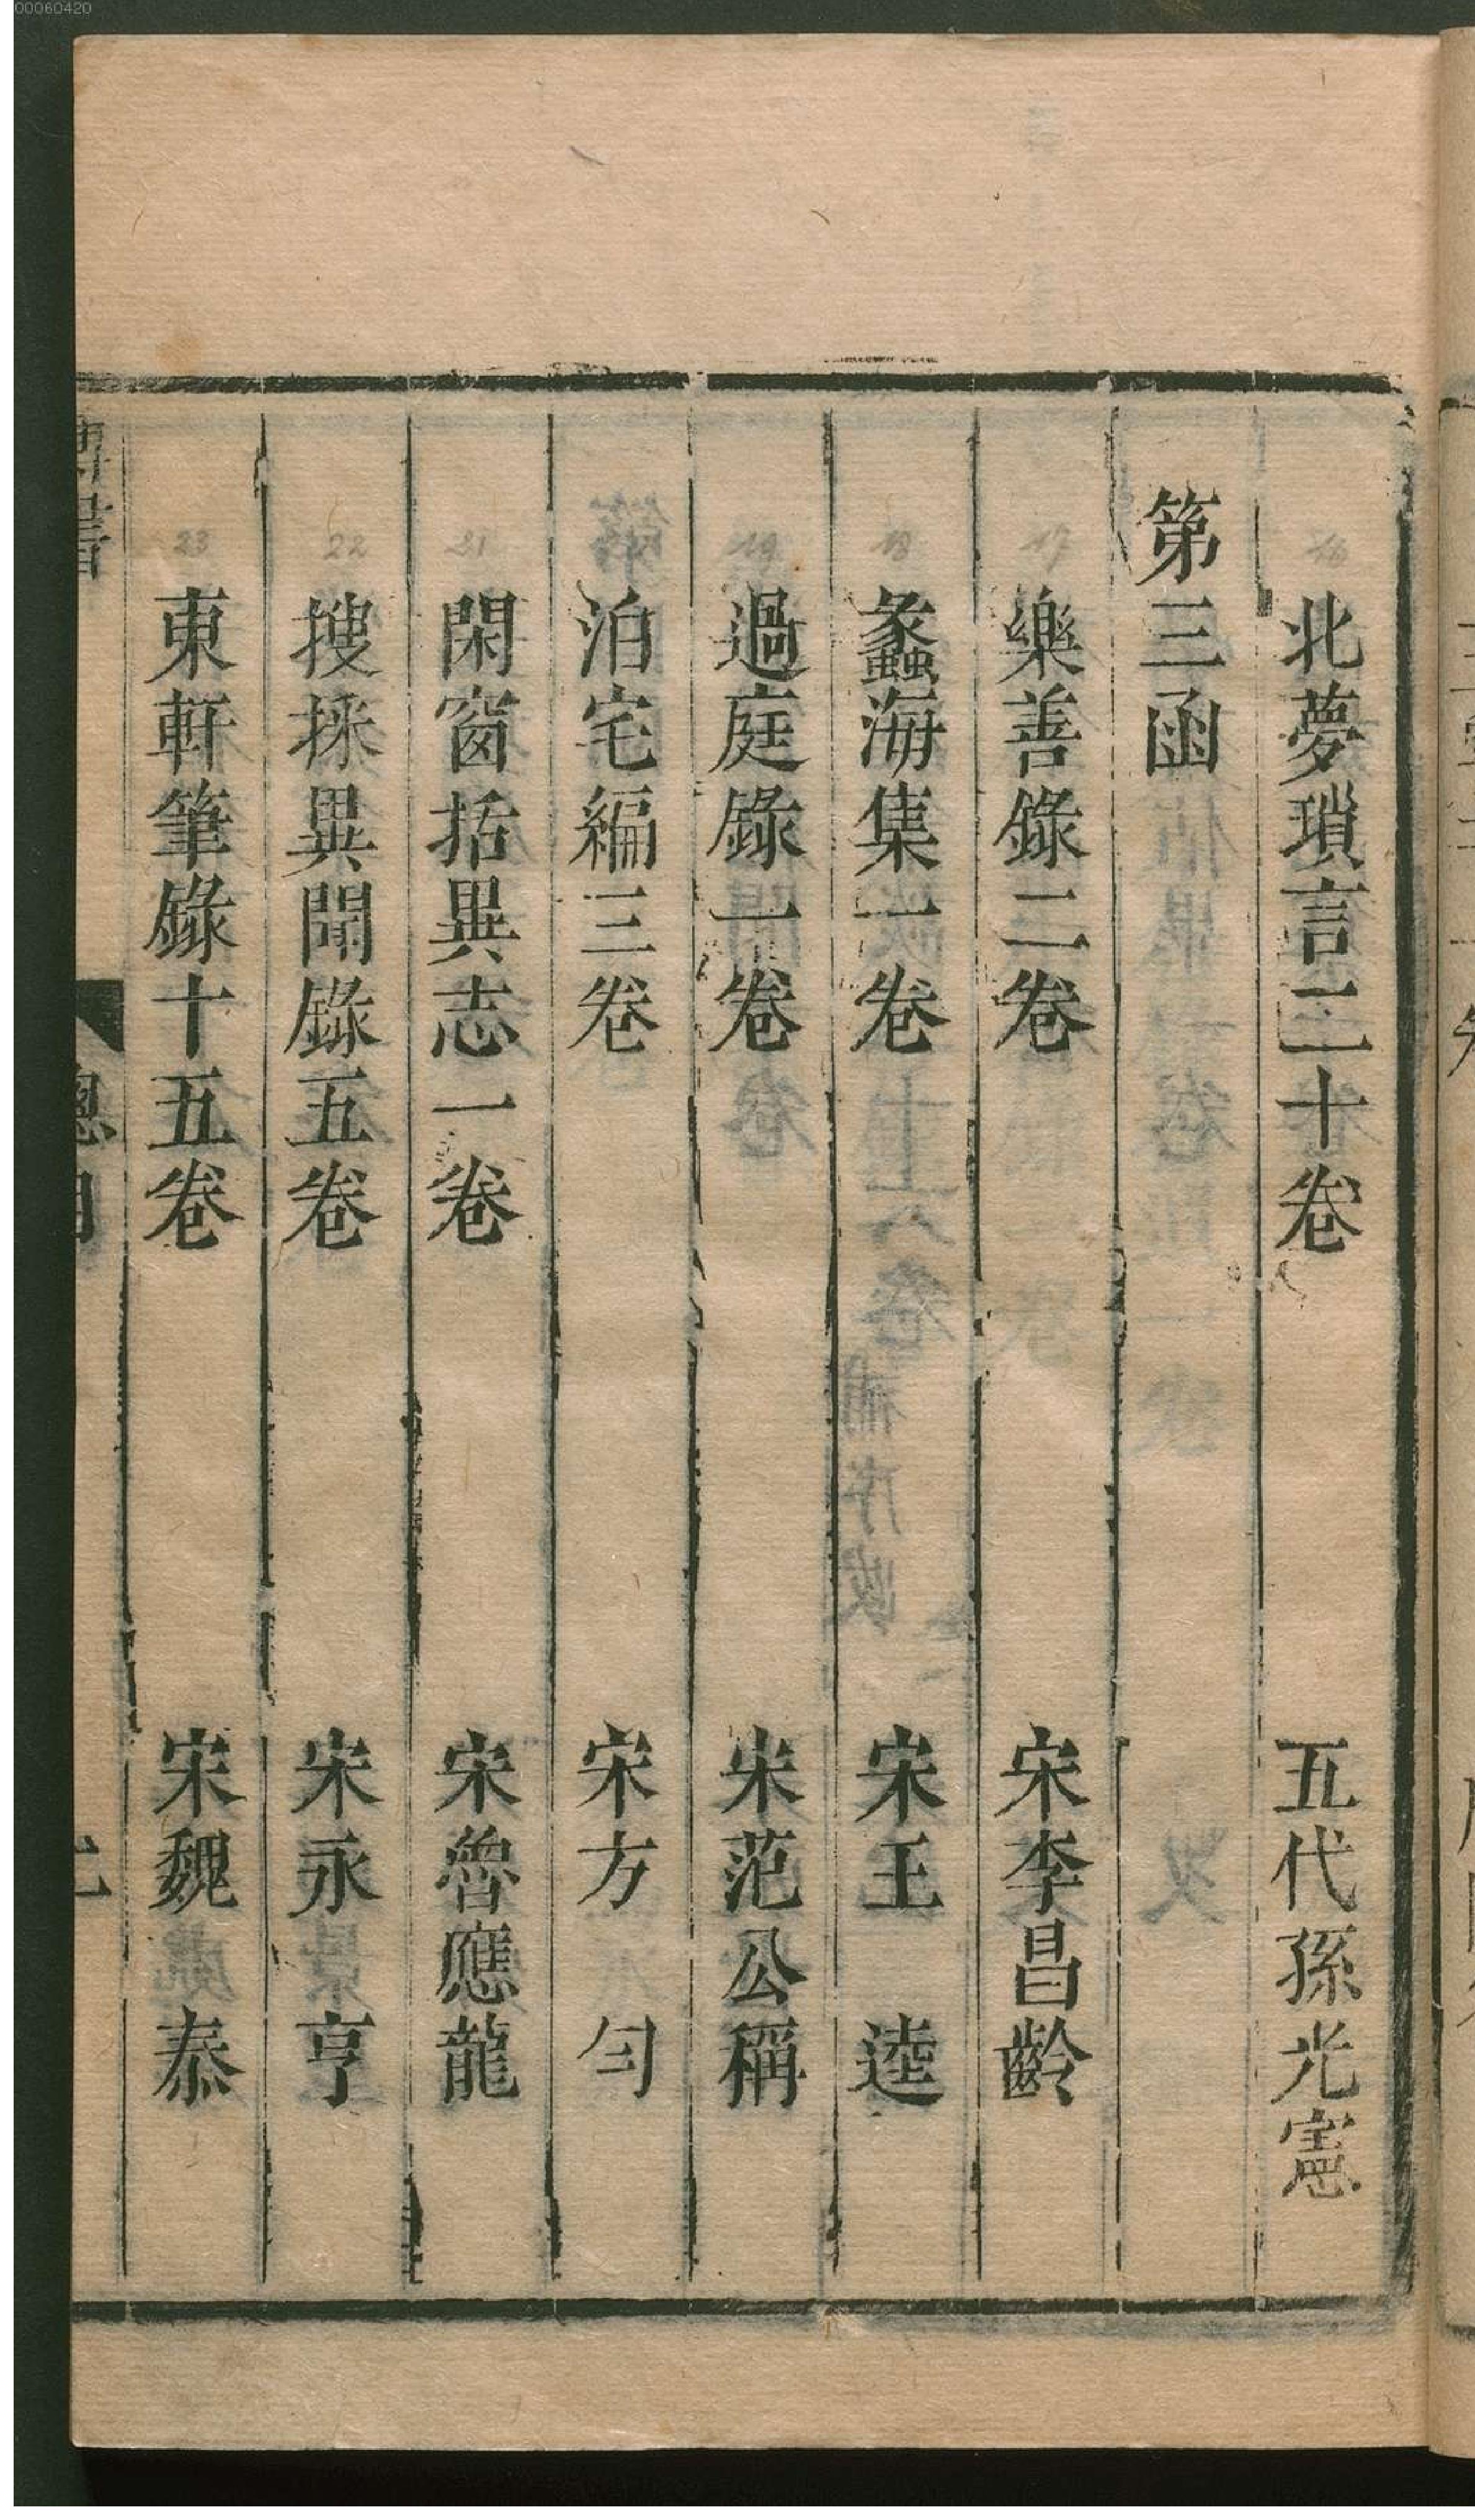 00060420
北夢瑣言二十卷 五代孫光憲
第三函
樂善錄二卷 宋李昌齡
蠡海集一卷 宋王逵
過庭錄一卷 宋范公稱
泊宅編三卷 宋方勻
閑窗括異志一卷 宋魯應龍
搜採異聞錄五卷 宋永亨
東軒筆錄十五卷 宋魏泰
16
17
18
19
21
22
23